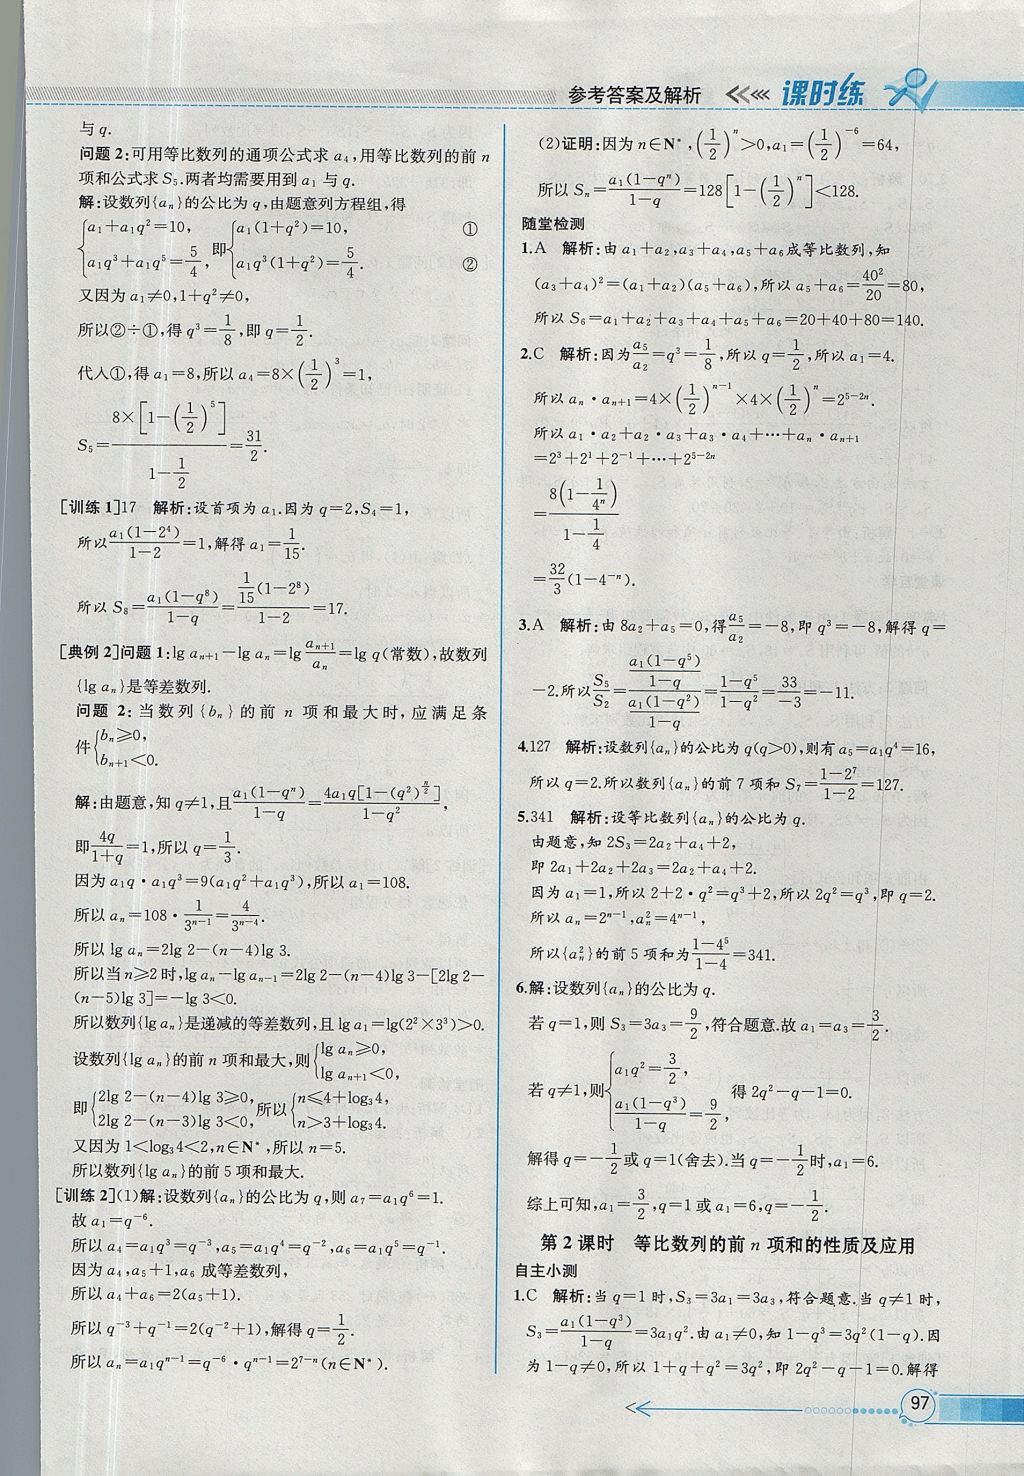 参考答案及解析 课时练
与q.
问题2:可用等比数列的通项公式求a₄,用等比数列的前n
项和公式求S₅.两者均需要用到a₁与q.
解:设数列{aₙ}的公比为q,由题意列方程组,得
{a₁+a₁q²=10, a₁q³+a₁q⁵=5/4, 即{a₁(1+q²)=10, ① a₁q³(1+q²)=5/4. ②
又因为a₁≠0,1+q²≠0,
所以②÷①,得q³=1/8,即q=1/2.
代入①,得a₁=8,所以a₄=8×(1/2)³=1,
S₅=8×[1-(1/2)⁵]/(1-1/2)=31/2.
[训练1]17 解析:设首项为a₁.因为q=2,S₄=1,
所以a₁(1-2⁴)/(1-2)=1,解得a₁=1/15.
所以S₈=a₁(1-q⁸)/(1-q)=(1/15)(1-2⁸)/(1-2)=17.
[典例2]问题1:lg aₙ₊₁-lg aₙ=lg aₙ₊₁/aₙ=lg q(常数),故数列
{lg aₙ}是等差数列.
问题2:当数列{bₙ}的前n项和最大时,应满足条
件{bₙ≥0, bₙ₊₁<0.
解:由题意,知q≠1,且a₁(1-qⁿ)/(1-q)=4a₁q[1-(q²)^(n/2)]/(1-q²),
即4q/(1+q)=1,所以q=1/3.
因为a₁q·a₁q³=9(a₁q²+a₁q³),所以a₁=108.
所以aₙ=108·1/3ⁿ⁻¹=4/3ⁿ⁻⁴.
所以lg aₙ=2lg 2-(n-4)lg 3.
所以当n≥2时,lg aₙ-lg aₙ₋₁=2lg 2-(n-4)lg 3-[2lg 2-
(n-5)lg 3]=-lg 3<0.
所以数列{lg aₙ}是递减的等差数列,且lg a₁=lg(2²×3³)>0.
设数列{lg aₙ}的前n项和最大,则{lg aₙ≥0, lg aₙ₊₁<0,
即{2lg 2-(n-4)lg 3≥0, 2lg 2-(n-3)lg 3<0, 所以{n≤4+log₃4, n>3+log₃4.
又因为1<log₃4<2,n∈N*,所以n=5.
所以数列{lg aₙ}的前5项和最大.
[训练2](1)解:设数列{aₙ}的公比为q,则a₇=a₁q⁶=1.
故a₁=q⁻⁶.
所以a₄=a₁q³=q⁻³,a₅=a₁q⁴=q⁻²,a₆=a₁q⁵=q⁻¹.
因为a₄,a₅+1,a₆成等差数列,
所以a₄+a₆=2(a₅+1).
所以q⁻³+q⁻¹=2(q⁻²+1),解得q=1/2.
所以aₙ=a₁qⁿ⁻¹=q⁻⁶·qⁿ⁻¹=2⁷⁻ⁿ(n∈N*).
(2)证明:因为n∈N*,(1/2)ⁿ>0,a₁=(1/2)⁻⁶=64,
所以Sₙ=a₁(1-qⁿ)/(1-q)=128[1-(1/2)ⁿ]<128.
随堂检测
1.A 解析:由a₁+a₂,a₃+a₄,a₅+a₆成等比数列,知
(a₃+a₄)²=(a₁+a₂)(a₅+a₆),所以a₅+a₆=40²/20=80,
所以S₆=a₁+a₂+a₃+a₄+a₅+a₆=20+40+80=140.
2.C 解析:因为a₅/a₂=q³=1/8,所以q=1/2,所以a₁=4.
所以aₙ·aₙ₊₁=4×(1/2)ⁿ⁻¹×4×(1/2)ⁿ=2⁵⁻²ⁿ.
所以a₁·a₂+a₂·a₃+a₃·a₄+…+aₙ·aₙ₊₁
=2³+2¹+2⁻¹+…+2⁵⁻²ⁿ
=8(1-1/4ⁿ)/(1-1/4)
=32/3(1-4⁻ⁿ).
3.A 解析:由8a₂+a₅=0,得a₅/a₂=-8,即q³=-8,解得q=
-2.所以S₅/S₂=[a₁(1-q⁵)/(1-q)]/[a₁(1-q²)/(1-q)]=(1-q⁵)/(1-q²)=33/-3=-11.
4.127 解析:设数列{aₙ}的公比为q(q>0),则有a₅=a₁q⁴=16,
所以q=2.所以数列{aₙ}的前7项和S₇=(1-2⁷)/(1-2)=127.
5.341 解析:设等比数列{aₙ}的公比为q.
由题意,知2S₃=2a₂+a₄+2,
即2a₁+2a₂+2a₃=2a₂+a₄+2.
因为a₁=1,所以2+2·q²=q³+2,所以2q²=q³,即q=2.
所以aₙ=2ⁿ⁻¹,aₙ²=4ⁿ⁻¹,
所以{aₙ²}的前5项和为(1-4⁵)/(1-4)=341.
6.解:设数列{aₙ}的公比为q.
若q=1,则S₃=3a₃=9/2,符合题意.故a₁=a₃=3/2.
若q≠1,则{a₁q²=3/2, a₁(1-q³)/(1-q)=9/2, 得2q²-q-1=0.
解得q=-1/2或q=1(舍去).当q=-1/2时,a₁=6.
综上可知,a₁=3/2,q=1或a₁=6,q=-1/2.
第2课时 等比数列的前n项和的性质及应用
自主小测
1.C 解析:当q=1时,S₃=3a₁=3a₃,符合题意.当q≠1时,
S₃=a₁(1-q³)/(1-q)=3a₁q².由a₁≠0,知1-q³=3q²(1-q).因
为1-q≠0,所以1+q+q²=3q²,即2q²-q-1=0.解得
97